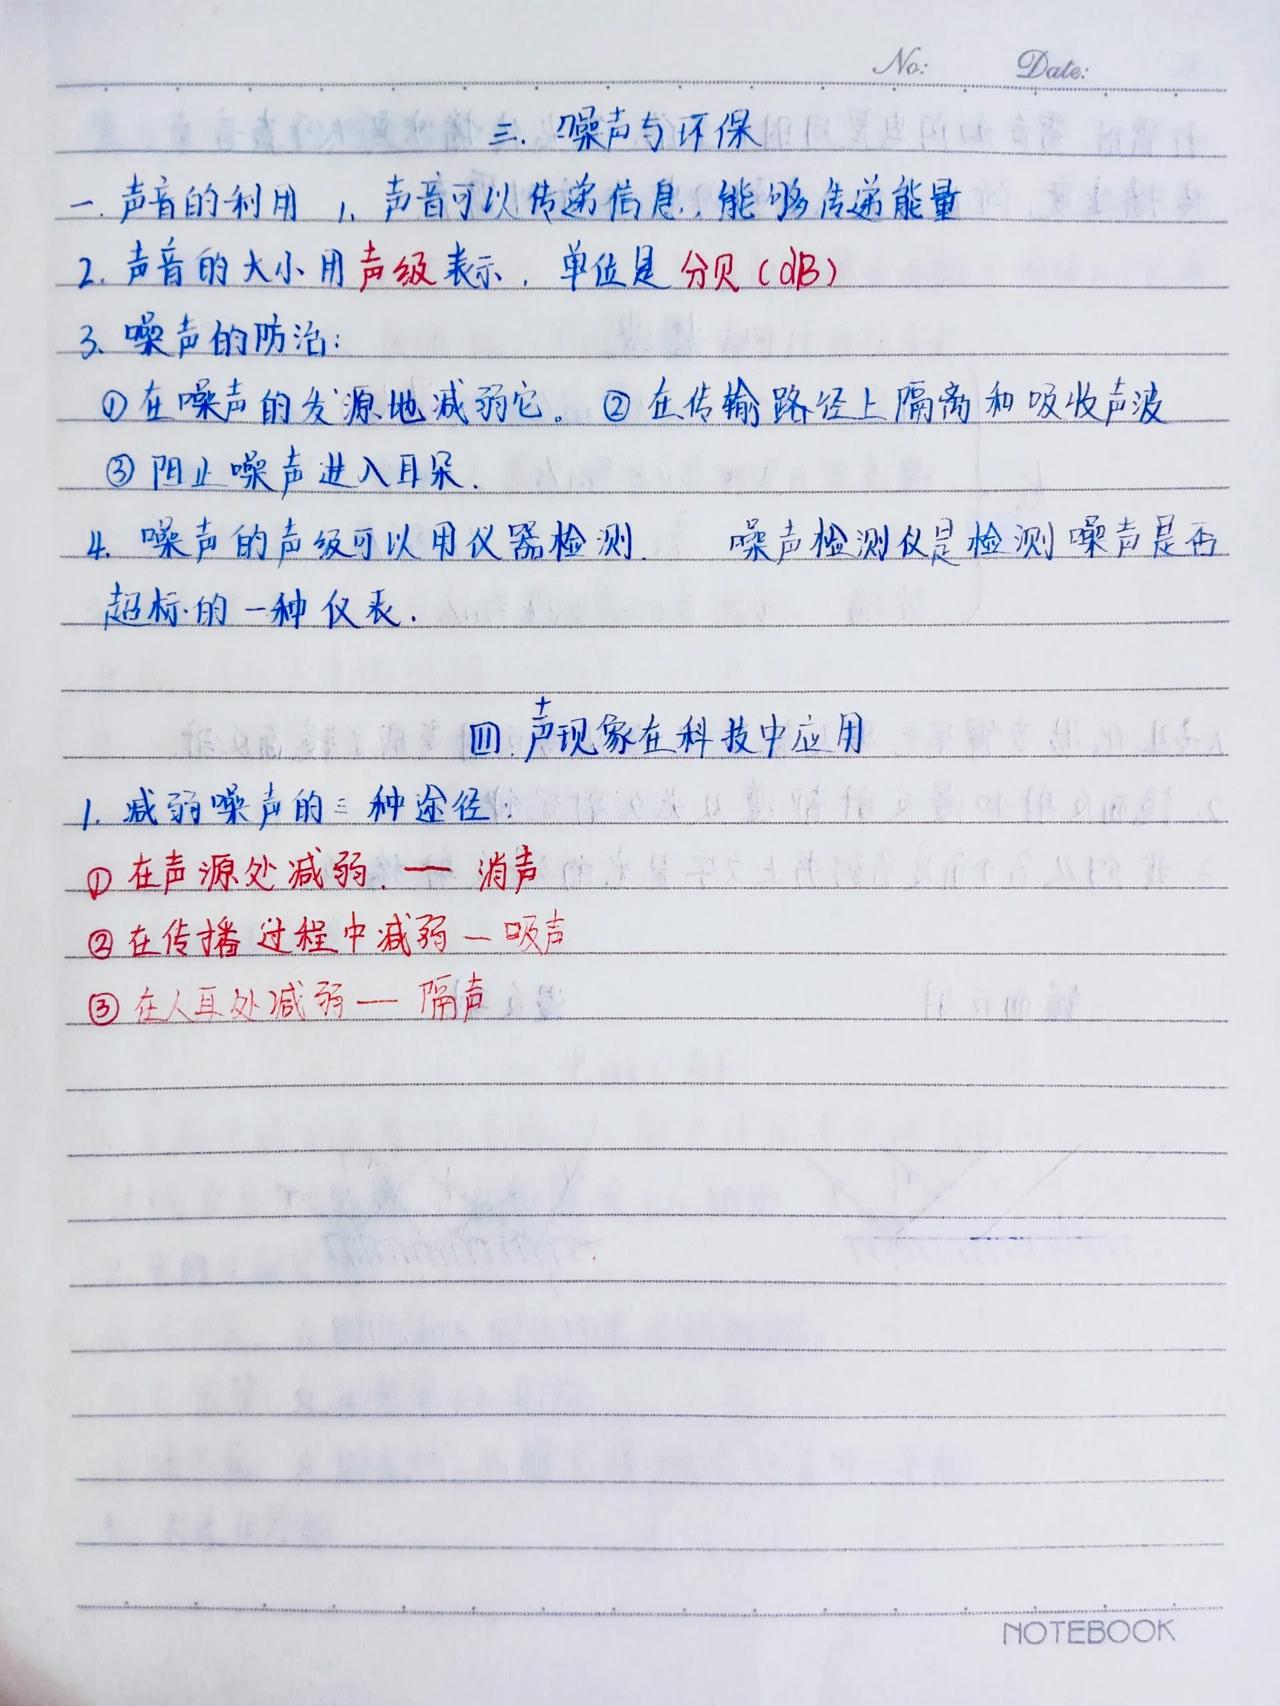 No: Date:
三. 噪声与环保
一. 声音的利用 1. 声音可以传递信息, 能够传递能量
2. 声音的大小用声级表示, 单位是分贝(dB)
3. 噪声的防治:
①在噪声的发源地减弱它。 ②在传输路径上隔离和吸收声波
③阻止噪声进入耳朵.
4. 噪声的声级可以用仪器检测. 噪声检测仪是检测噪声是否
超标的一种仪表.
四. 声现象在科技中应用
1. 减弱噪声的三种途径:
①在声源处减弱. — 消声
②在传播过程中减弱 — 吸声
③在人耳处减弱 — 隔声
NOTEBOOK